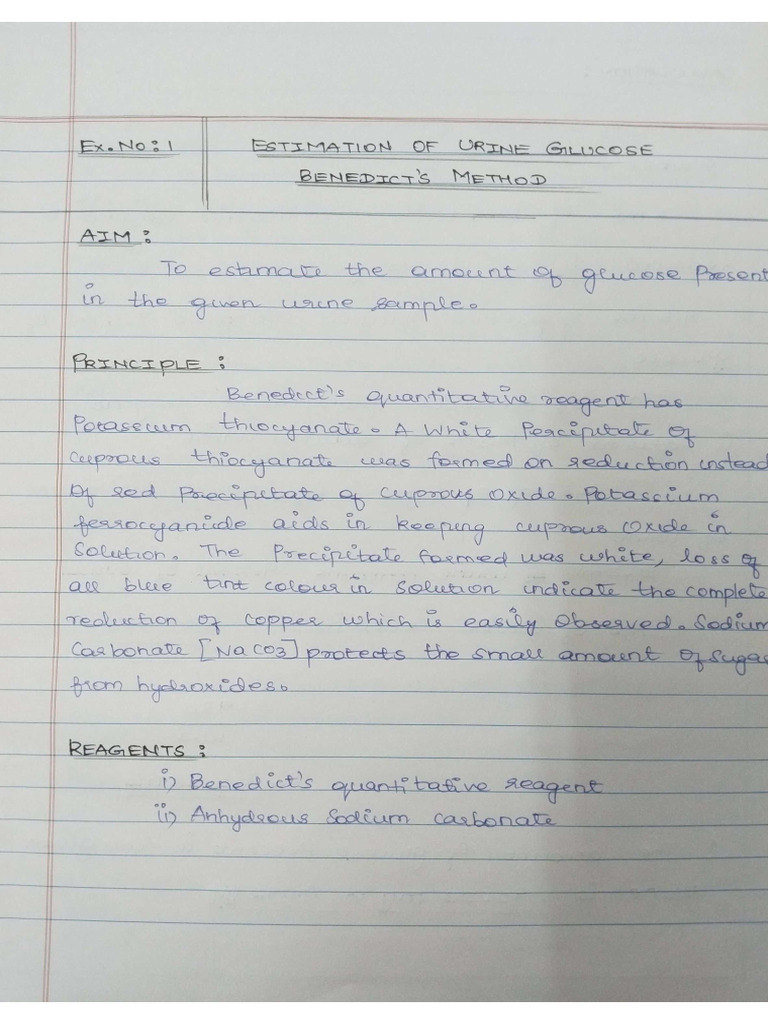 Ex. No: 1
ESTIMATION OF URINE GLUCOSE
BENEDICT'S METHOD
AIM:
To estimate the amount of glucose Present
in the given urine sample.
PRINCIPLE:
Benedict's quantitative reagent has
Potassium thiocyanate. A White Percipitate of
cuprous thiocyanate was formed on reduction instead
Of red Precipitate of cuprous oxide. Potassium
ferrocyanide aids in keeping cuprous oxide in
Solution. The Precipitate formed was white, loss of
all blue tint colour in solution indicate the complete
reduction of copper which is easily Observed. Sodium
Carbonate [NaCO3] protects the small amount of sugar
from hydroxides.
REAGENTS:
i) Benedict's quantitative reagent
ii) Anhydrous Sodium carbonate